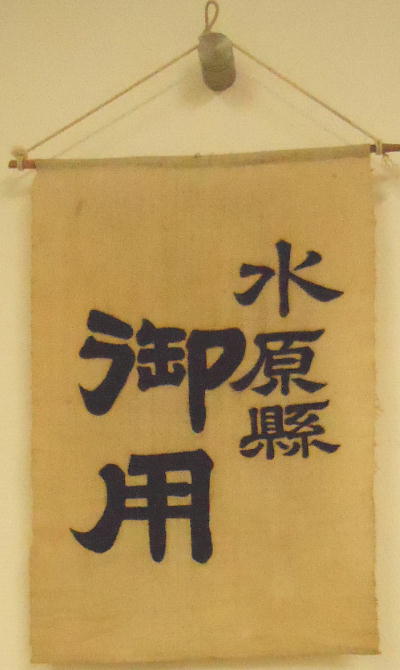 水原縣
御用